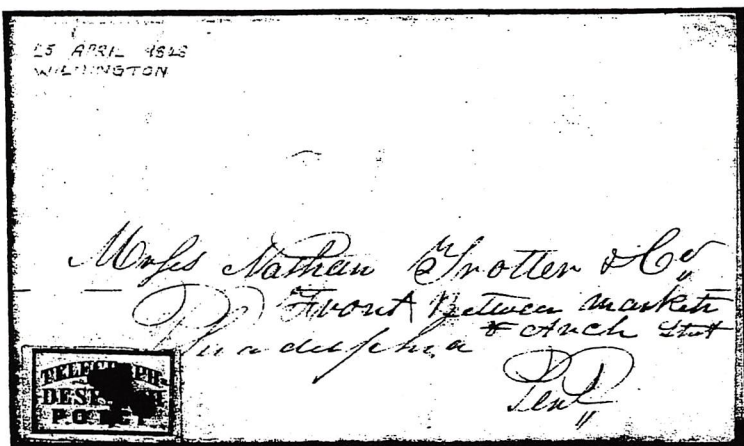 25 APRIL 1828
WILMINGTON
Messs Nathan Trotter & Co
Front Between market
& Arch Street
Philadelphia
Pen
TELEGRAPH
DESPATCH
P.O.